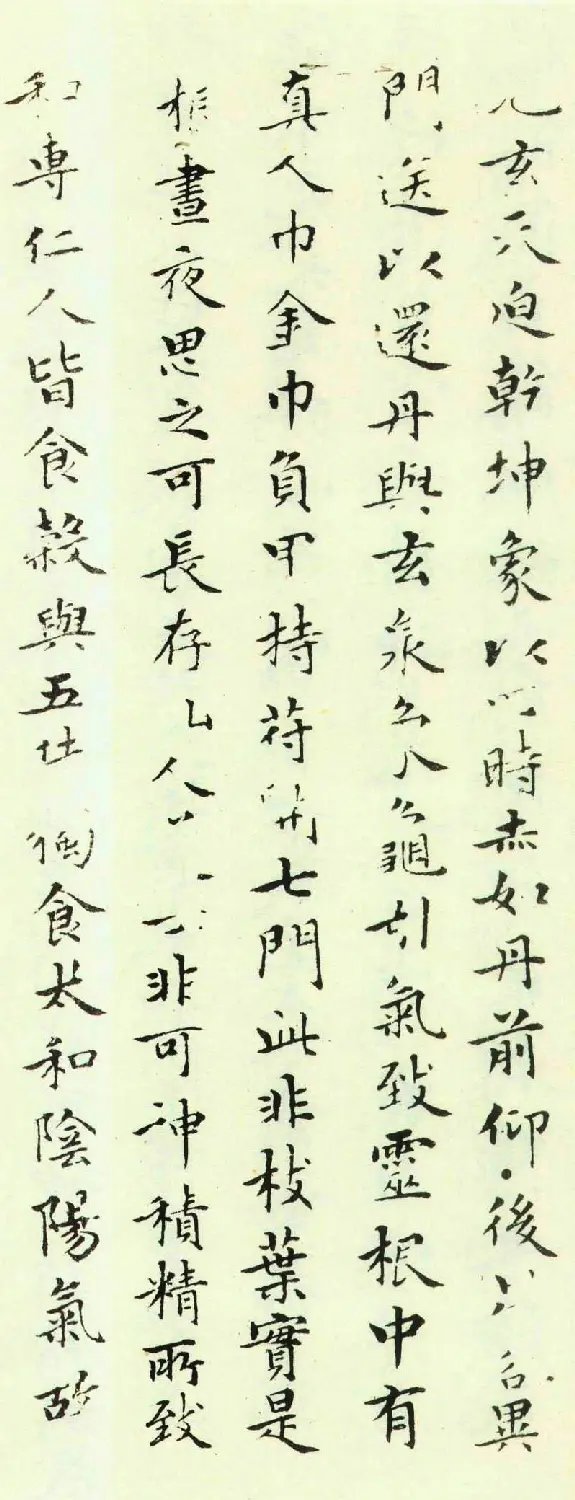 玄天迫乾坤象以時赤如丹前仰後異
門送以還丹與玄泉龜引氣致靈根中有
真人巾金巾負甲持符開七門此非枝葉實是
根晝夜思之可長存人非可神積精所致
和專仁人皆食穀與五食太和陰陽氣故